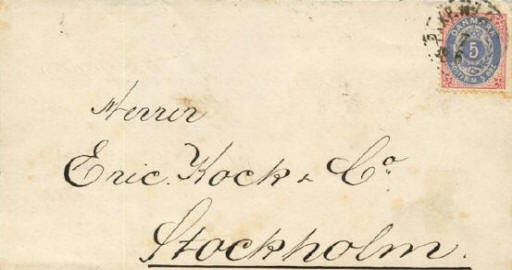 DANMARK
5
Herrer
Eric. Kock & Co
Stockholm.